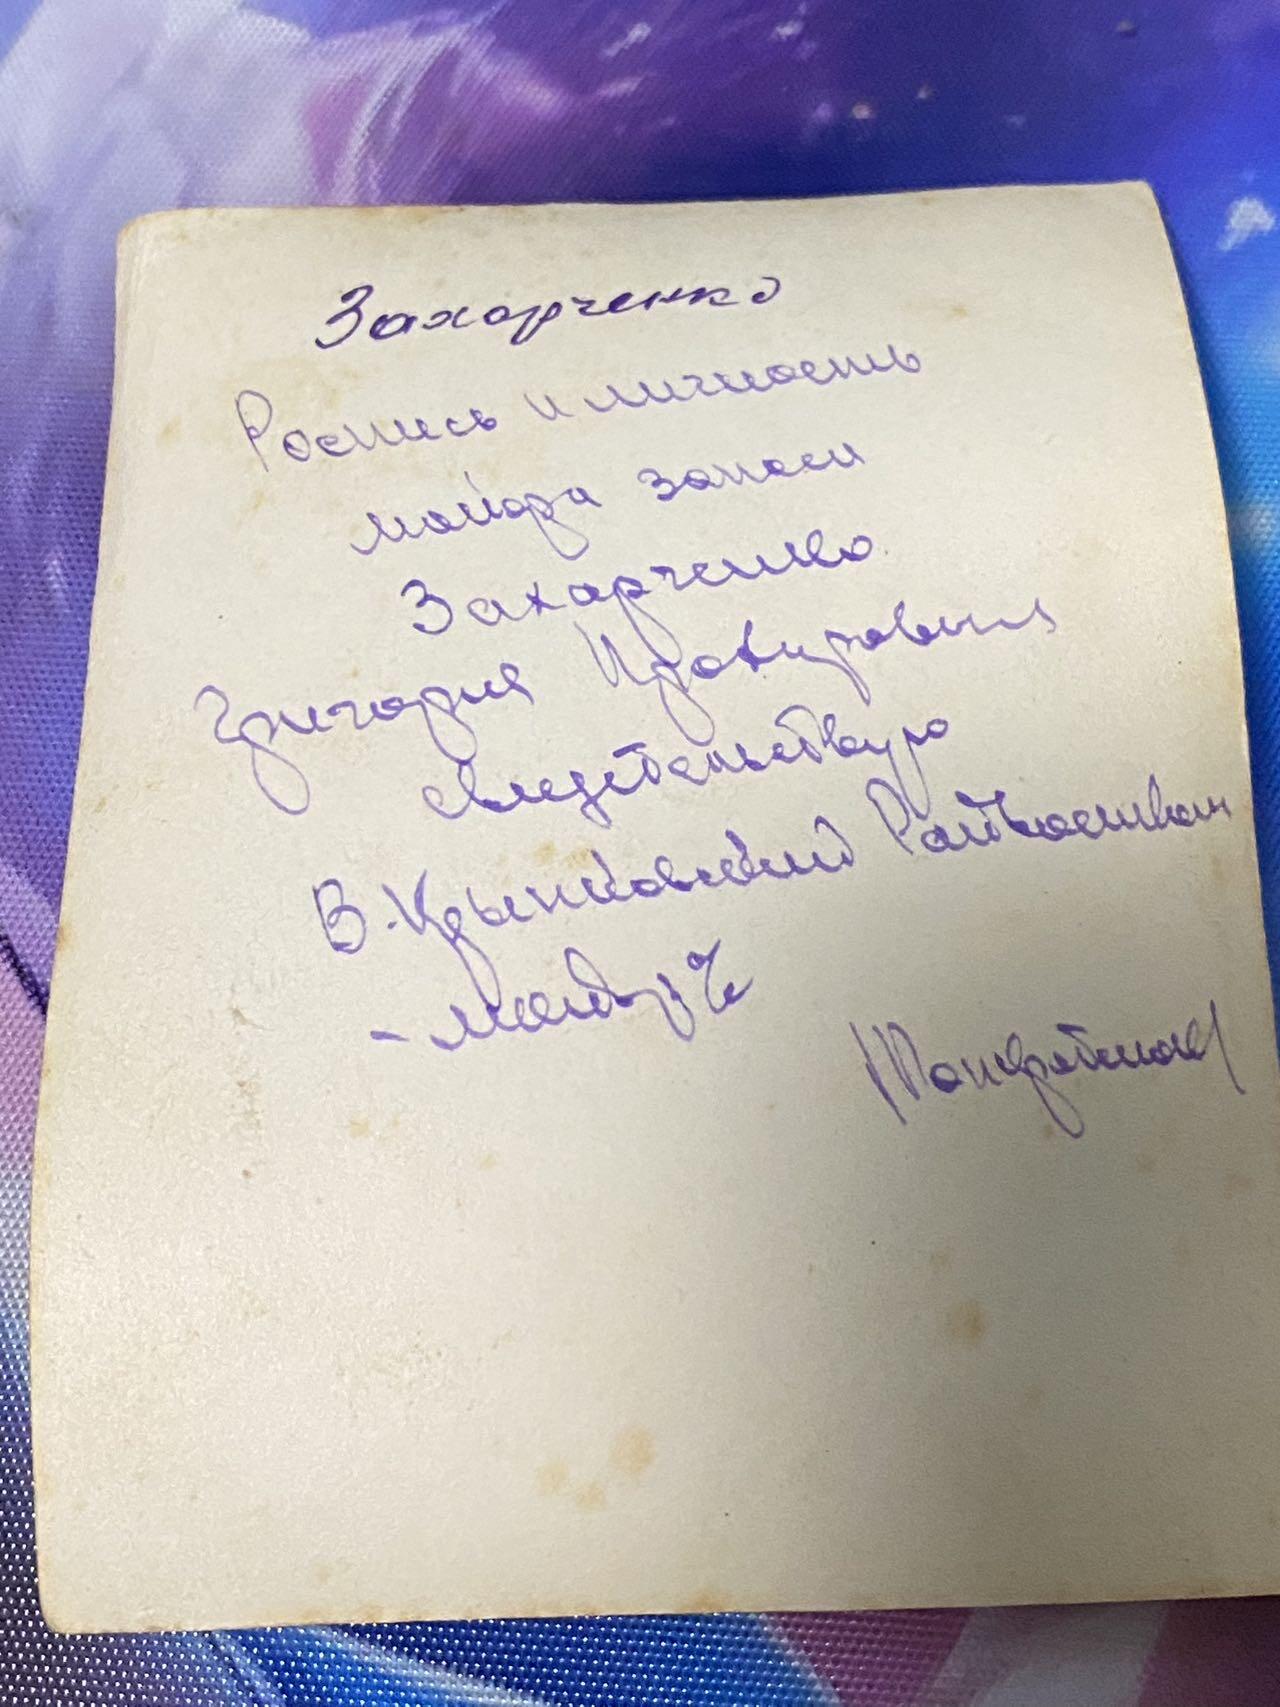 Захарченко
Роспись и личность
майора запаса
Захарченко
Григория
свидетельствую
В. Крынковский Райвоенком
- майор